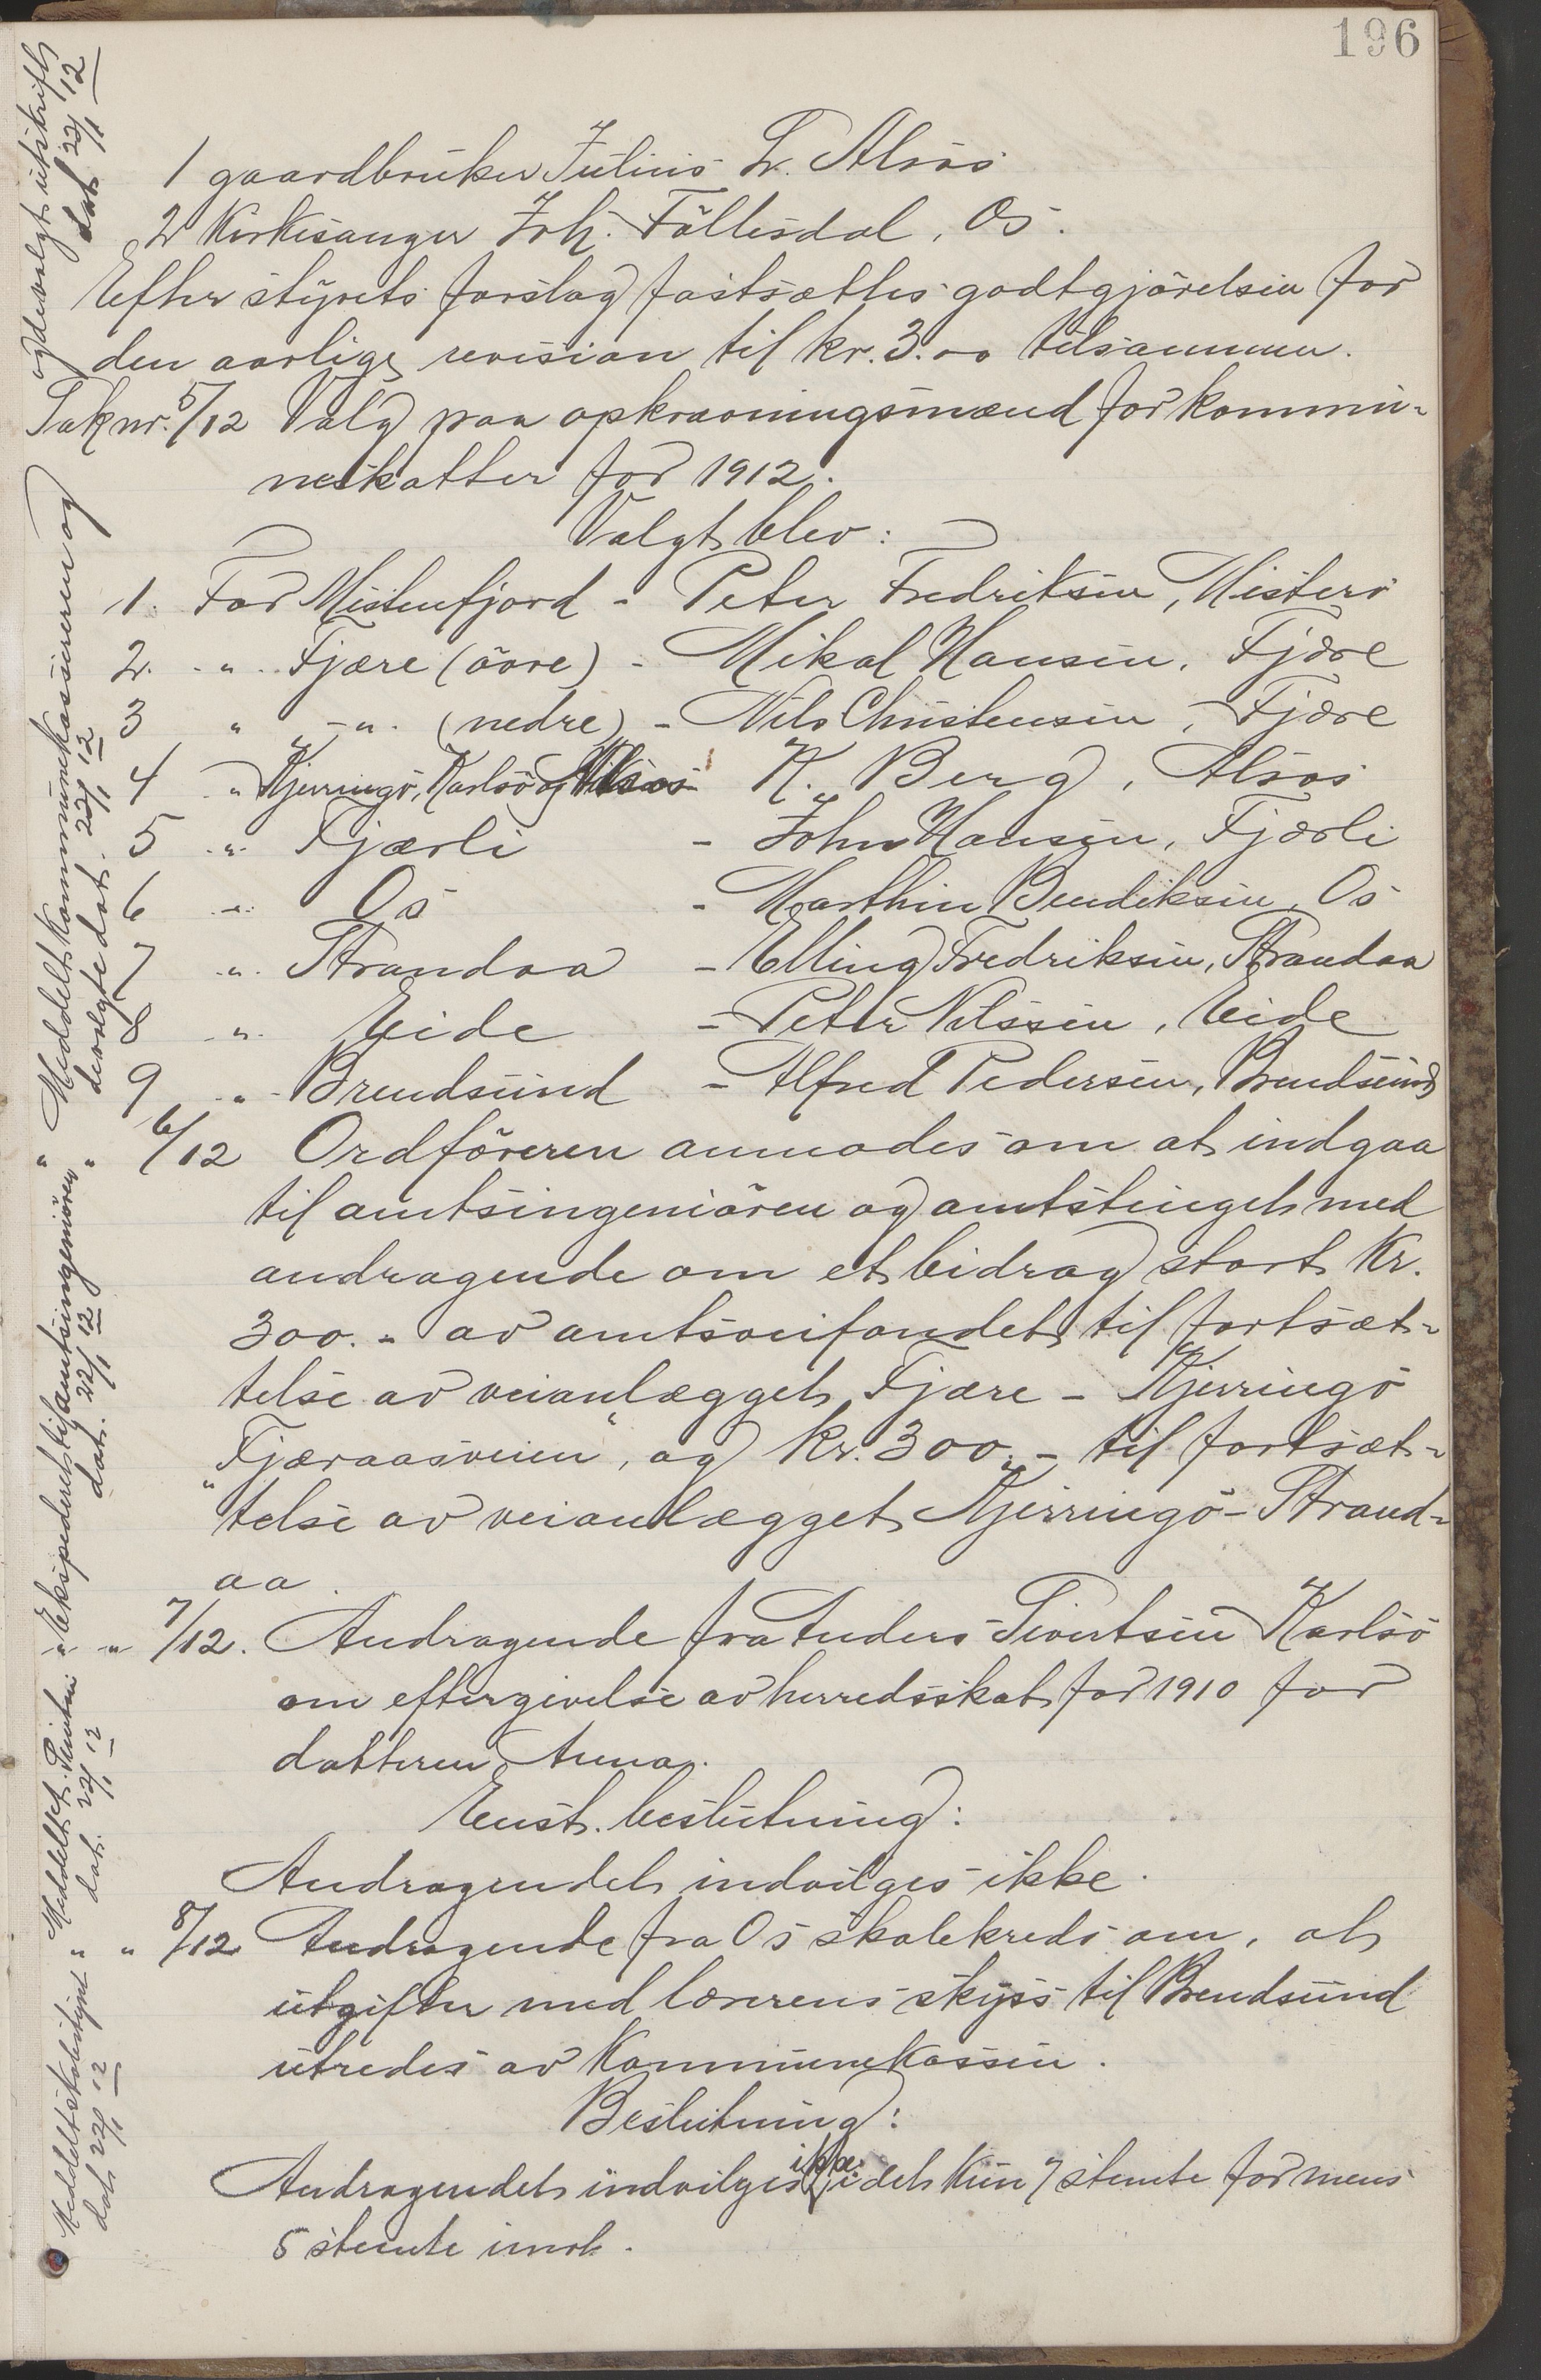 196
1 gaardbruker Julius L. Alsos
2 Kirkesanger Joh. Föllesdal, Os.
Efter styrets forslag fastsættes godtgjörelsen for
den aarlige revision til kr. 3.00 tilsammen.
Sak nr. 5/12 Valg paa opkrævningsmænd for kommu-
neskatter for 1912.
Valgt blev:
1. For Mistenfjord - Peter Fredriksen, Misterö
2. " Fjære (övre) - Mikal Hansen, Fjære
3 " -"- (nedre) - Nils Christensen, Fjære
4 " Kjerringö, Karlsö og Alsos K. Berg, Alsos
5 " Fjærli - John Hansen, Fjærli
6 " Os - Marthin Bendiksen, Os
7 " Strandaa - Elling Fredriksen, Strandaa
8 " Eide - Peter Nilssen, Eide
9 " Brendsund - Alfred Pedersen, Brendsund
" 6/12 Ordföreren anmodes om at indgaa
til amtsingeniören og amtstinget med
andragende om et bidrag stort kr.
300.- av amtsveifondet til fortsæt-
telse av veianlægget Fjære - Kjerringö
"Fjæraasveien", og kr. 300.- til fortsæt-
telse av veianlægget Kjerringö - Strand-
aa.
" 7/12. Andragende fra Anders Sivertsen Karlsö
om eftergivelse av herredsskat for 1910 for
datteren Anna.
Enst. beslutning:
Andragendet indvilges ikke.
" 8/12 Andragende fra Os skolekreds om, at
utgifter med lærerens skyss til Brendsund
utredes av Kommunekassen.
Beslutning:
Andragendet indvilges ikke, idet kun 7 stemte for mens
5 stemte imot.
utskrift
dat 22/1 12
" Meddelt kommunekassereren og
de valgte dat. 22/1 12
" Ekspedert til amtsingeniören
dat. 22/1 12
" Meddelt Sivertsen
dat. 22/1 12
" Meddelt skolestyret
dat 22/1 12